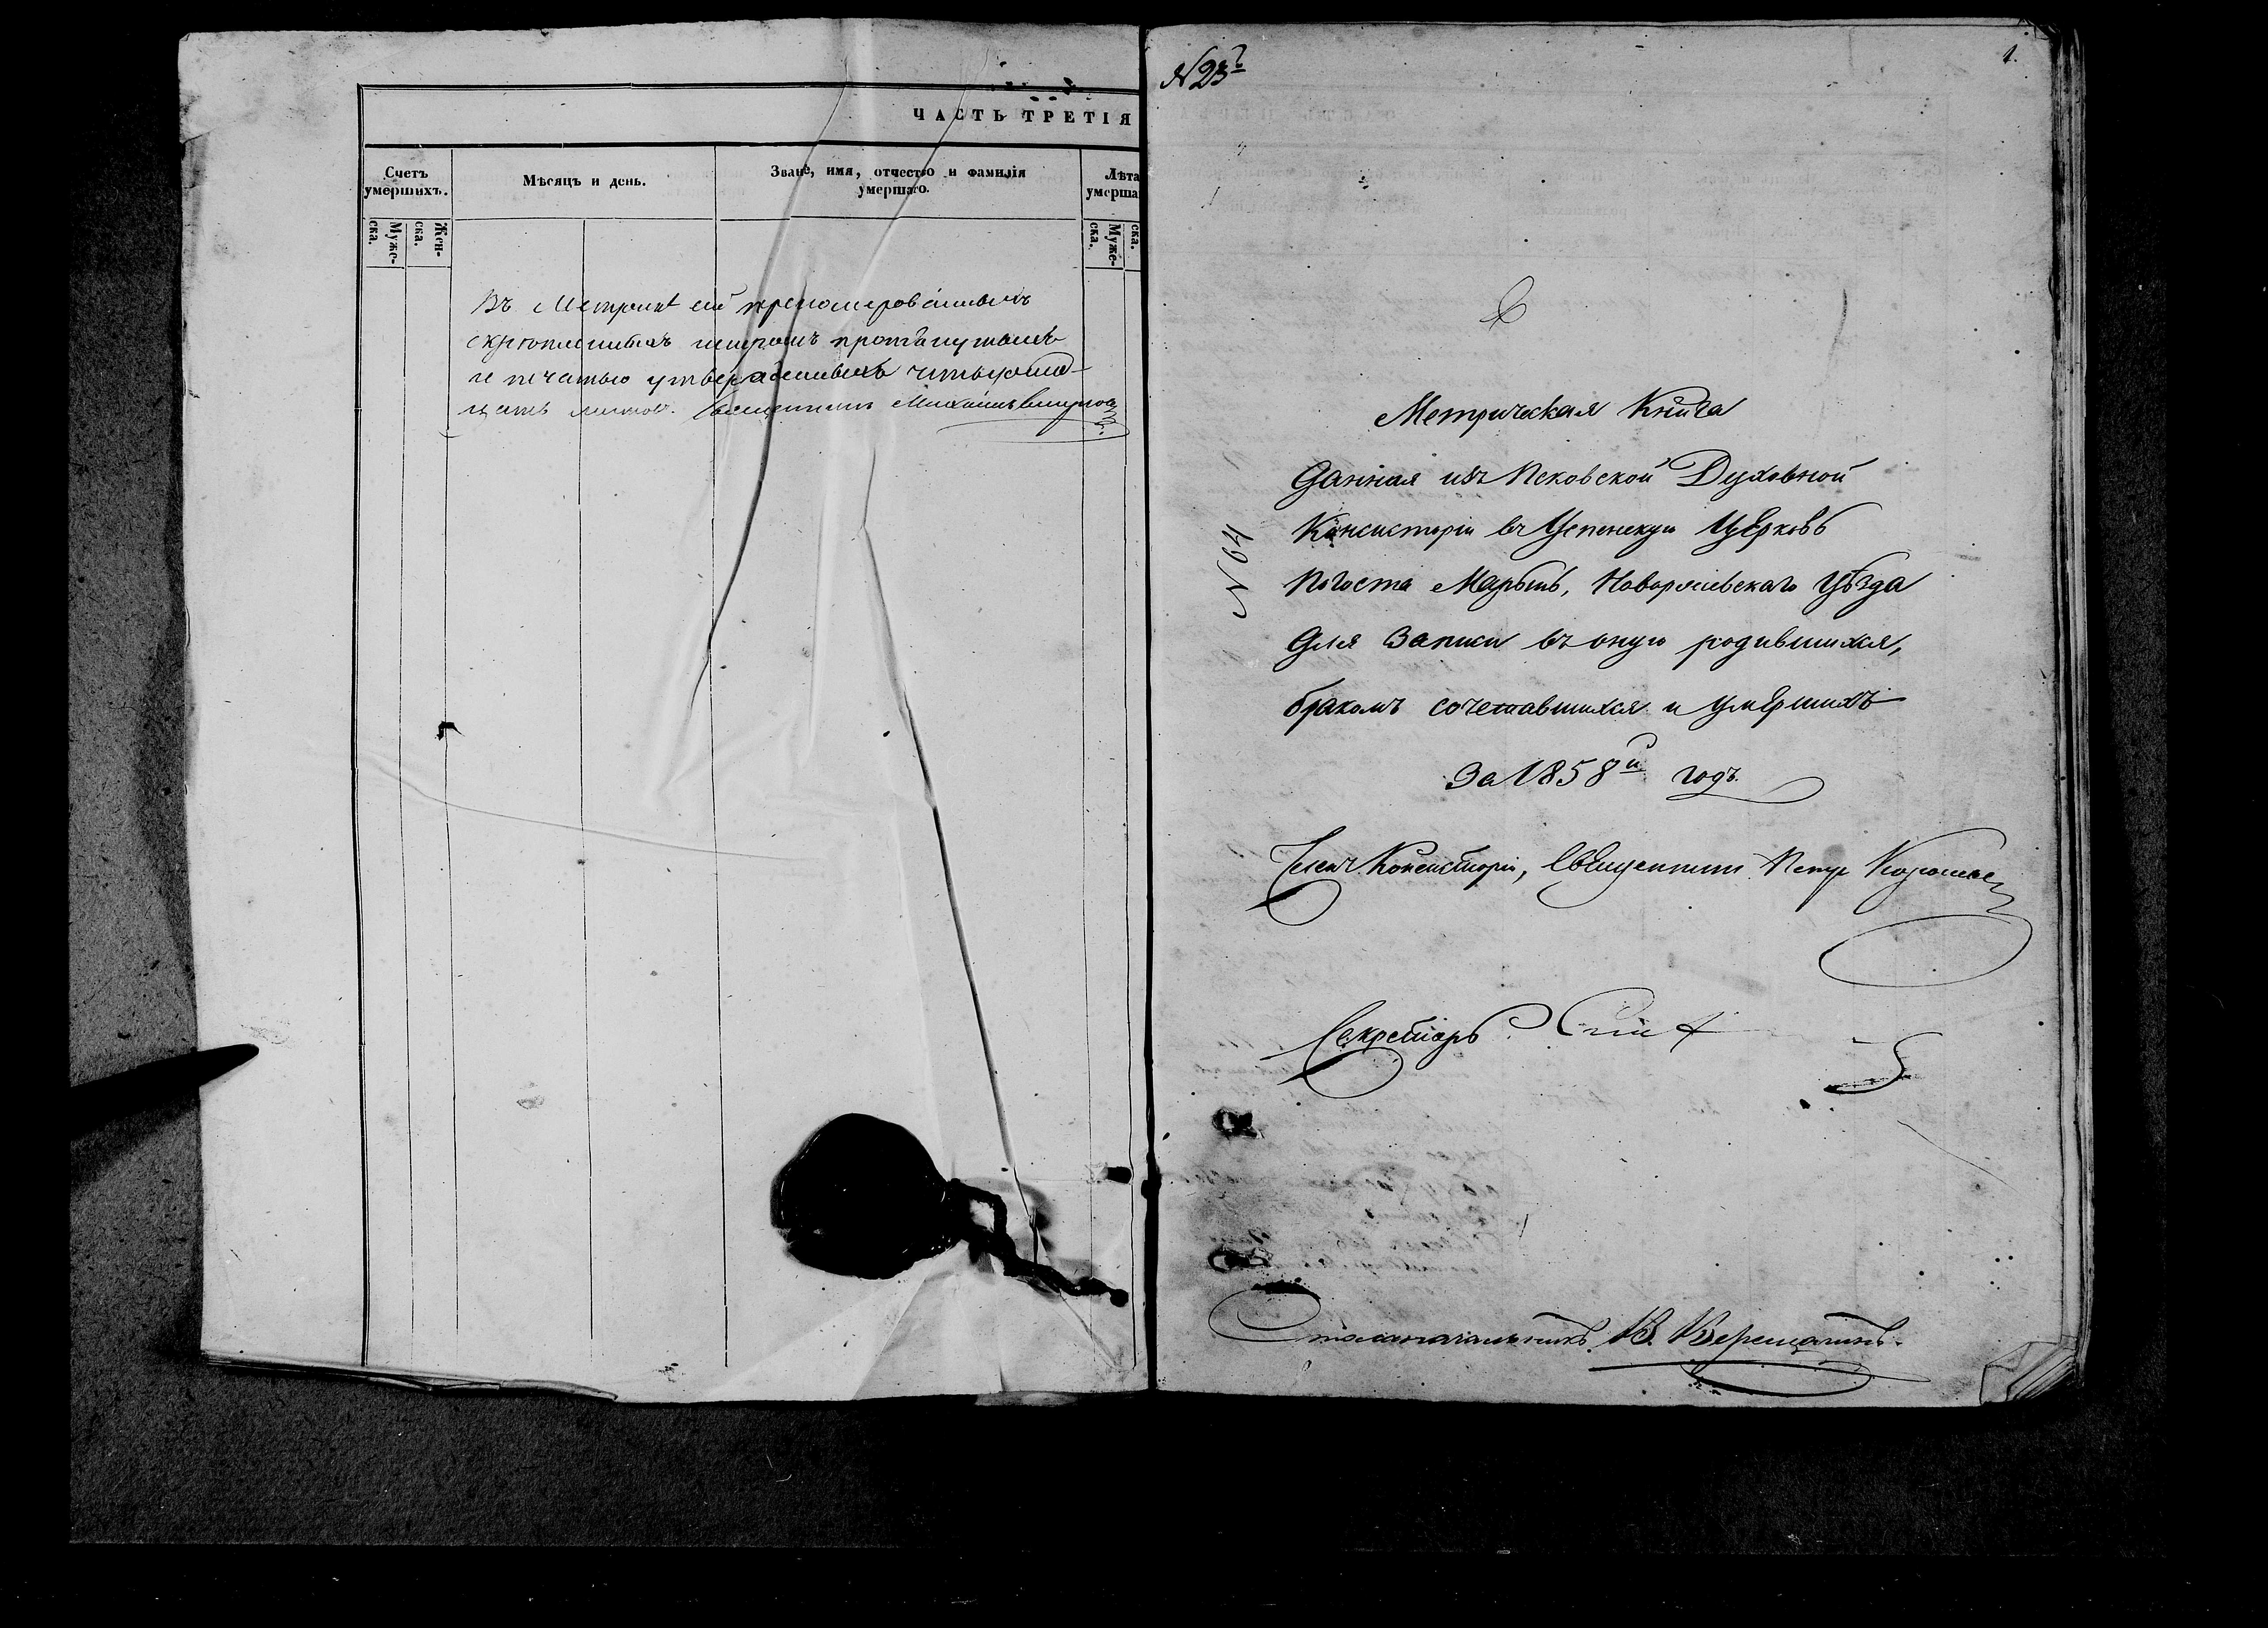 ЧАСТЬ ТРЕТІЯ
Счетъ умершихъ.
Мѣсяцъ и день.
Званіе, имя, отчество и фамилія умершаго.
Лѣта умерша
Муже-ска.
Жен-ска.
Муже-ска.
ска.
Въ Метрикѣ сей
скрѣпленныхъ шнуромъ протянутымъ
и печатью утвержденныхъ
листовъ. Священникъ Михаилъ
№ 23
1.
№ 64
Метрическая Книга
Данная изъ Псковской Духовной
Консисторіи въ Успенскую Церковь
Погоста Марынь, Новоржевскаго Уѣзда
Для Записи въ оную родившихся,
бракомъ сочетавшихся и умершихъ
За 1858й годъ.
Членъ Консисторіи, Священникъ Петръ
Секретарь
Столоначальникъ В. Верещагинъ.